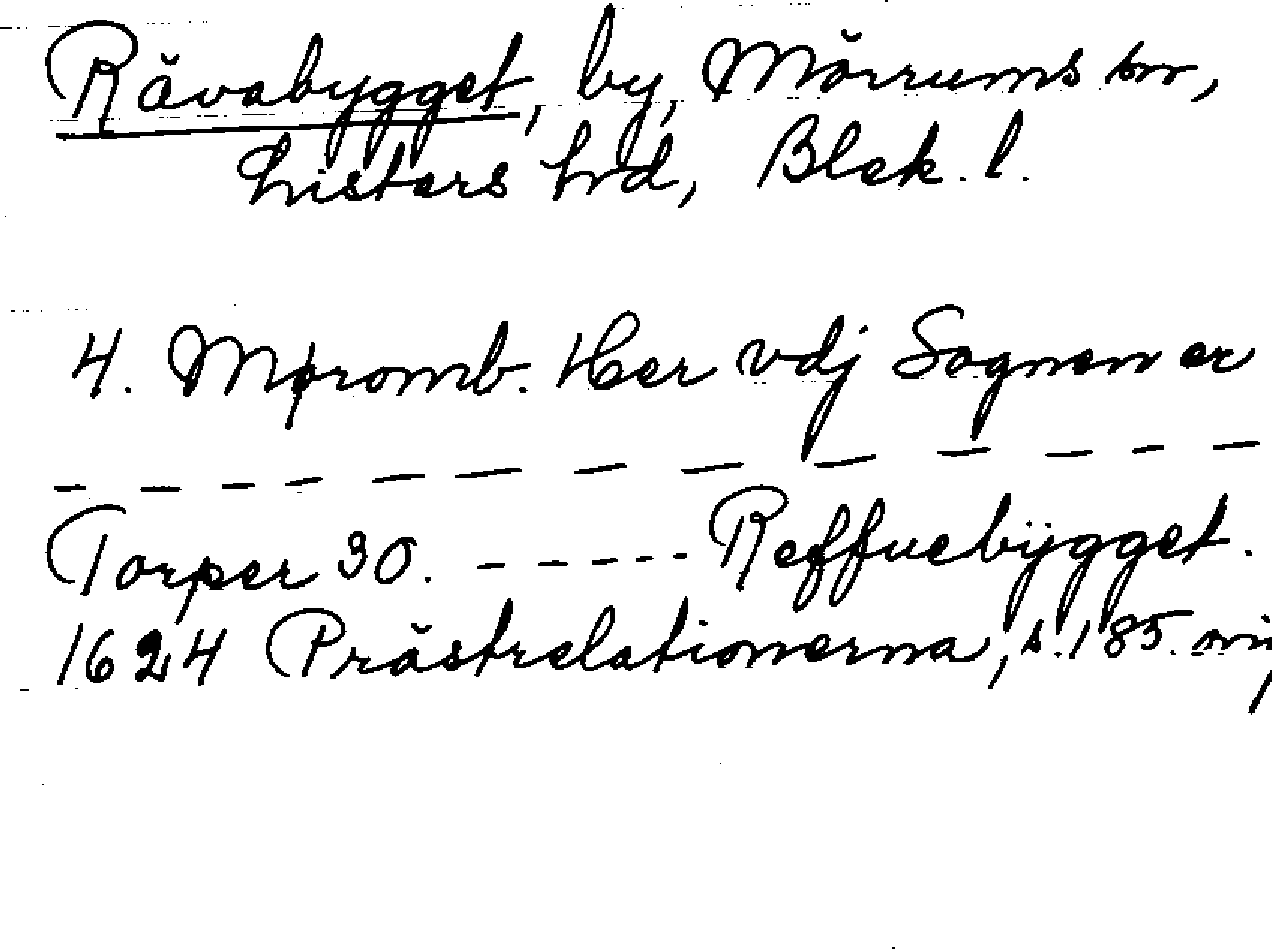 Rävabygget, by, Mörrums sn,
Listers hrd, Blek. l.
4. Møromb. Her vdj Sognen er
— — — — — — — — — — — —
Torper 30. - - - - - - Reffuebÿgget.
1624 Prästrelationerna, s. 185.